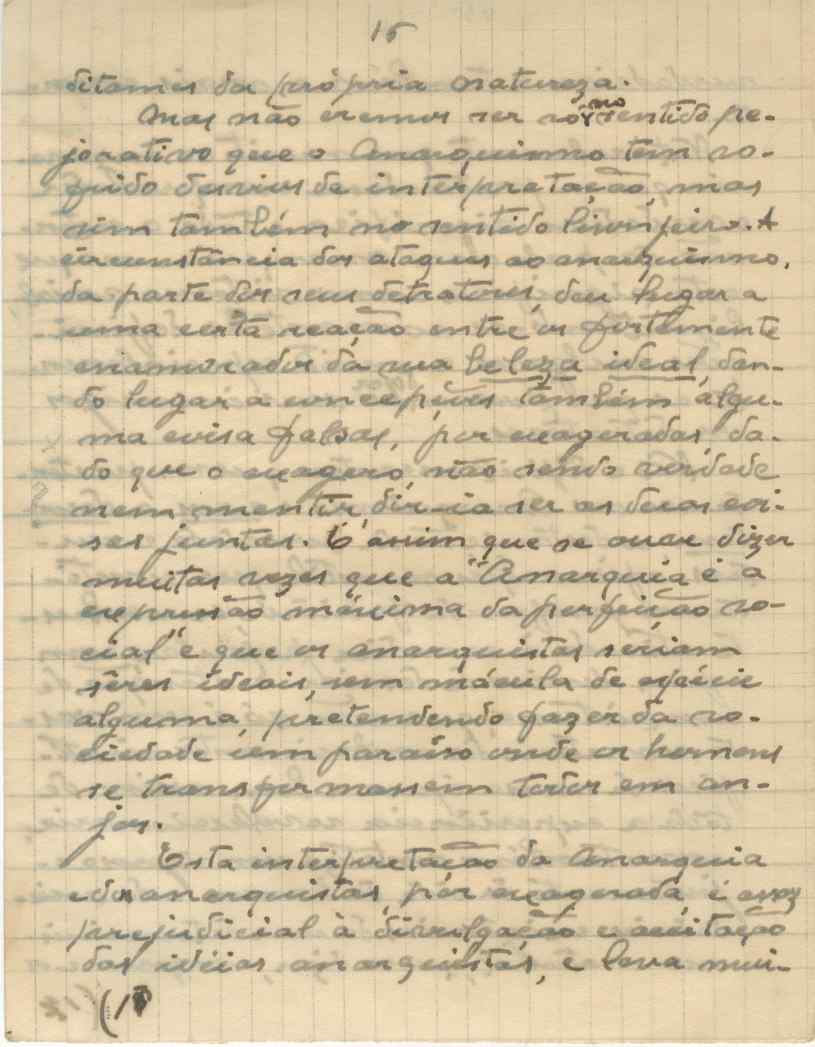 16
ditames da própria natureza.
Mas não cremos ser só no sentido pe-
jorativo que o Anarquismo tem so-
frido desvios de interpretação, mas
sim também no sentido lisonjeiro. A
circunstância dos ataques ao anarquismo,
da parte dos seus detratores, deu lugar a
uma certa reação entre os fortemente
enamorados da sua beleza ideal, dan-
do lugar a concepções também algu-
ma coisa falsas, por exageradas, da-
do que o exagero, não sendo verdade
nem mentir, dir-ia ser as duas coi-
sas juntas. É assim que se ouve dizer
muitas vezes que a "Anarquia é a
expressão máxima da perfeição so-
cial" e que os anarquistas seriam
sêres ideais, sem mácula de espécie
alguma, pretendendo fazer da so-
ciedade um paraíso onde os homens
se transformassem todos em an-
jos.
Esta interpretação da Anarquia
e dos anarquistas, por exagerada, é assaz
prejudicial à divulgação e aceitação
das idéias anarquistas, e leva mui-
(17